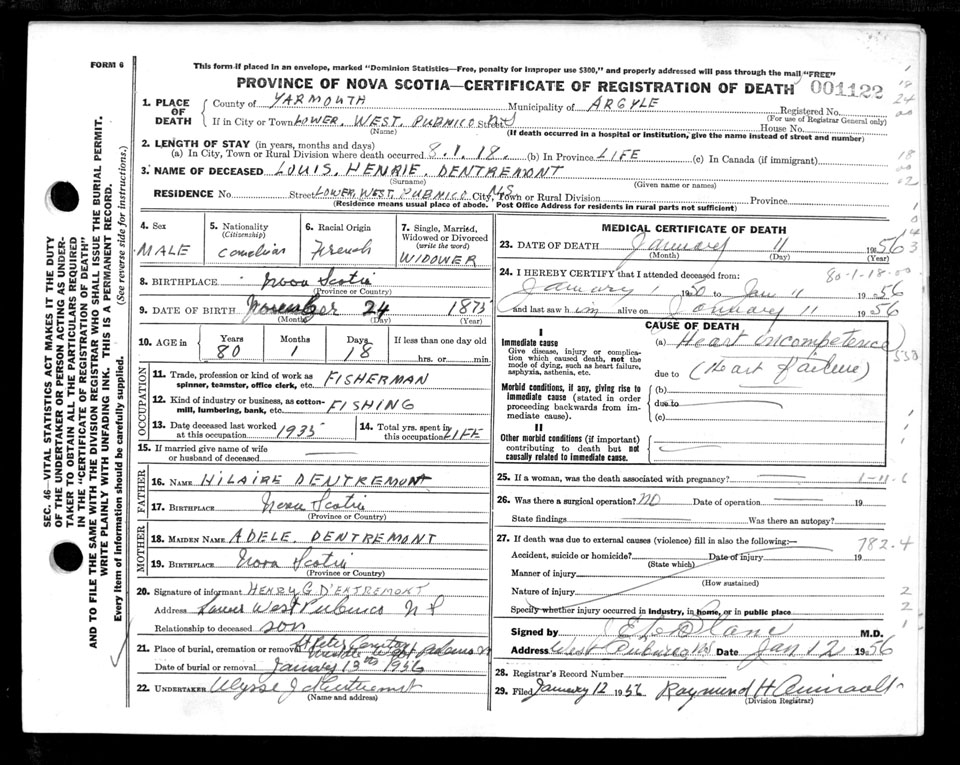 FORM 6
This form if placed in an envelope, marked "Dominion Statistics—Free, penalty for improper use $300," and properly addressed will pass through the mail "FREE"
PROVINCE OF NOVA SCOTIA—CERTIFICATE OF REGISTRATION OF DEATH 001122
1. PLACE OF DEATH
County of YARMOUTH Municipality of ARGYLE Registered No.
(For use of Registrar General only)
If in City or Town LOWER. WEST. PUBNICO Street N.S House No.
(Name) (If death occurred in a hospital or institution, give the name instead of street and number)
2. LENGTH OF STAY (in years, months and days)
(a) In City, Town or Rural Division where death occurred 8.1.18. (b) In Province LIFE (c) In Canada (if immigrant)
3. NAME OF DECEASED LOUIS. HENRIE. DENTREMONT
(Surname) (Given name or names)
RESIDENCE No. Street LOWER. WEST. PUBNICO City, Town or Rural Division N.S Province
(Residence means usual place of abode. Post Office Address for residents in rural parts not sufficient)
4. Sex
MALE
5. Nationality
(Citizenship)
Canadian
6. Racial Origin
French
7. Single, Married, Widowed or Divorced
(write the word)
WIDOWER
8. BIRTHPLACE Nova Scotia
(Province or Country)
9. DATE OF BIRTH November 24 1875
(Month) (Day) (Year)
10. AGE in
Years Months Days If less than one day old
80 1 18 hrs. or min.
OCCUPATION
11. Trade, profession or kind of work as
spinner, teamster, office clerk, etc. FISHERMAN
12. Kind of industry or business, as cotton-
mill, lumbering, bank, etc. FISHING
13. Date deceased last worked
at this occupation 1935
14. Total yrs. spent in
this occupation LIFE
15. If married give name of wife
or husband of deceased
FATHER
16. NAME HILAIRE DENTREMONT
17. BIRTHPLACE Nova Scotia
(Province or Country)
MOTHER
18. MAIDEN NAME ADELE. DENTREMONT
19. BIRTHPLACE Nova Scotia
(Province or Country)
20. Signature of informant HENRY G D'ENTREMONT
Address Lower West Pubnico N S
Relationship to deceased son
21. Place of burial, cremation or removal St Peter Cemetery
Middle West Pubnico
Date of burial or removal January 13th 1956
22. UNDERTAKER Ulysse J d'Entremont
(Name and address)
MEDICAL CERTIFICATE OF DEATH
23. DATE OF DEATH January 11 1956
(Month) (Day) (Year)
24. I HEREBY CERTIFY that I attended deceased from: 80-1-18-00
January 1 1950 to Jan 11 1956
and last saw him alive on January 11 1956
CAUSE OF DEATH
I
Immediate cause
Give disease, injury or complica-
tion which caused death, not the
mode of dying, such as heart failure,
asphyxia, asthenia, etc.
(a) Heart incompetence
due to (Heart failure)
Morbid conditions, if any, giving rise to
immediate cause (stated in order
proceeding backwards from im-
mediate cause).
(b)
due to
(c)
II
Other morbid conditions (if important)
contributing to death but not
causally related to immediate cause.
25. If a woman, was the death associated with pregnancy?
26. Was there a surgical operation? NO Date of operation 19
State findings Was there an autopsy?
27. If death was due to external causes (violence) fill in also the following:— 782.4
Accident, suicide or homicide? Date of injury 19
(State which)
Manner of injury
(How sustained)
Nature of injury
Specify whether injury occurred in industry, in home, or in public place
Signed by M.D.
Address West Pubnico NS Date Jan 12 1956
28. Registrar's Record Number
29. Filed January 12 1956 Raymond H Amirault
(Division Registrar)
SEC. 46—VITAL STATISTICS ACT MAKES IT THE DUTY
OF THE UNDERTAKER OR PERSON ACTING AS UNDER-
TAKER TO OBTAIN ALL THE PARTICULARS REQUIRED
IN THE "CERTIFICATE OF REGISTRATION OF DEATH"
AND TO FILE THE SAME WITH THE DIVISION REGISTRAR WHO SHALL ISSUE THE BURIAL PERMIT.
WRITE PLAINLY WITH UNFADING INK. THIS IS A PERMANENT RECORD.
Every item of Information should be carefully supplied. (See reverse side for instructions.)